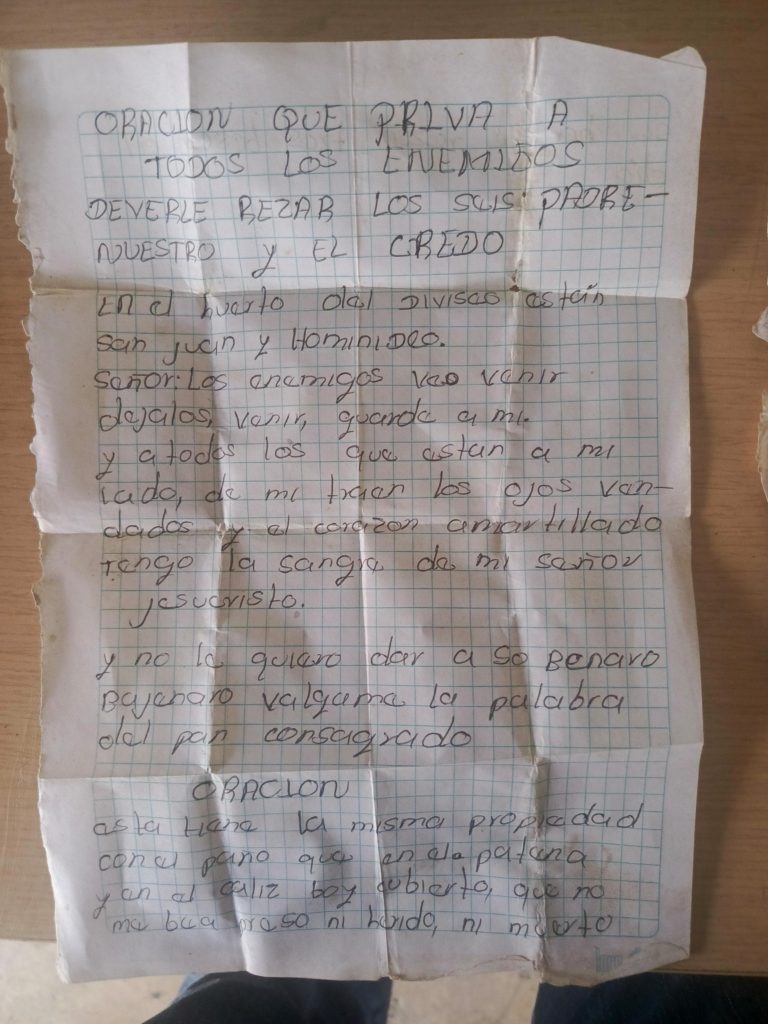 ORACION QUE PRIVA A
TODOS LOS ENEMIGOS
DEVERLE REZAR LOS SEIS PADRE-
NUESTRO y EL CREDO
EN el huerto del DIVISEO están
san juan y HOMINIDEO.
señor: Los enemigos veo venir
dejalos, venir, guarde a mi.
y a todos los que estan a mi
lado, de mi traen los ojos ven-
dados y el corazon amartillado
Tengo la sangre de mi señor
jesucristo.
y no la quiero dar a so Benaro
Bajenaro valgame la palabra
del pan consagrado
ORACION
esta tiene la misma propiedad
con el paño que en ela patena
y en el caliz boy cubierto, que no
me bea preso ni herido, ni muerto